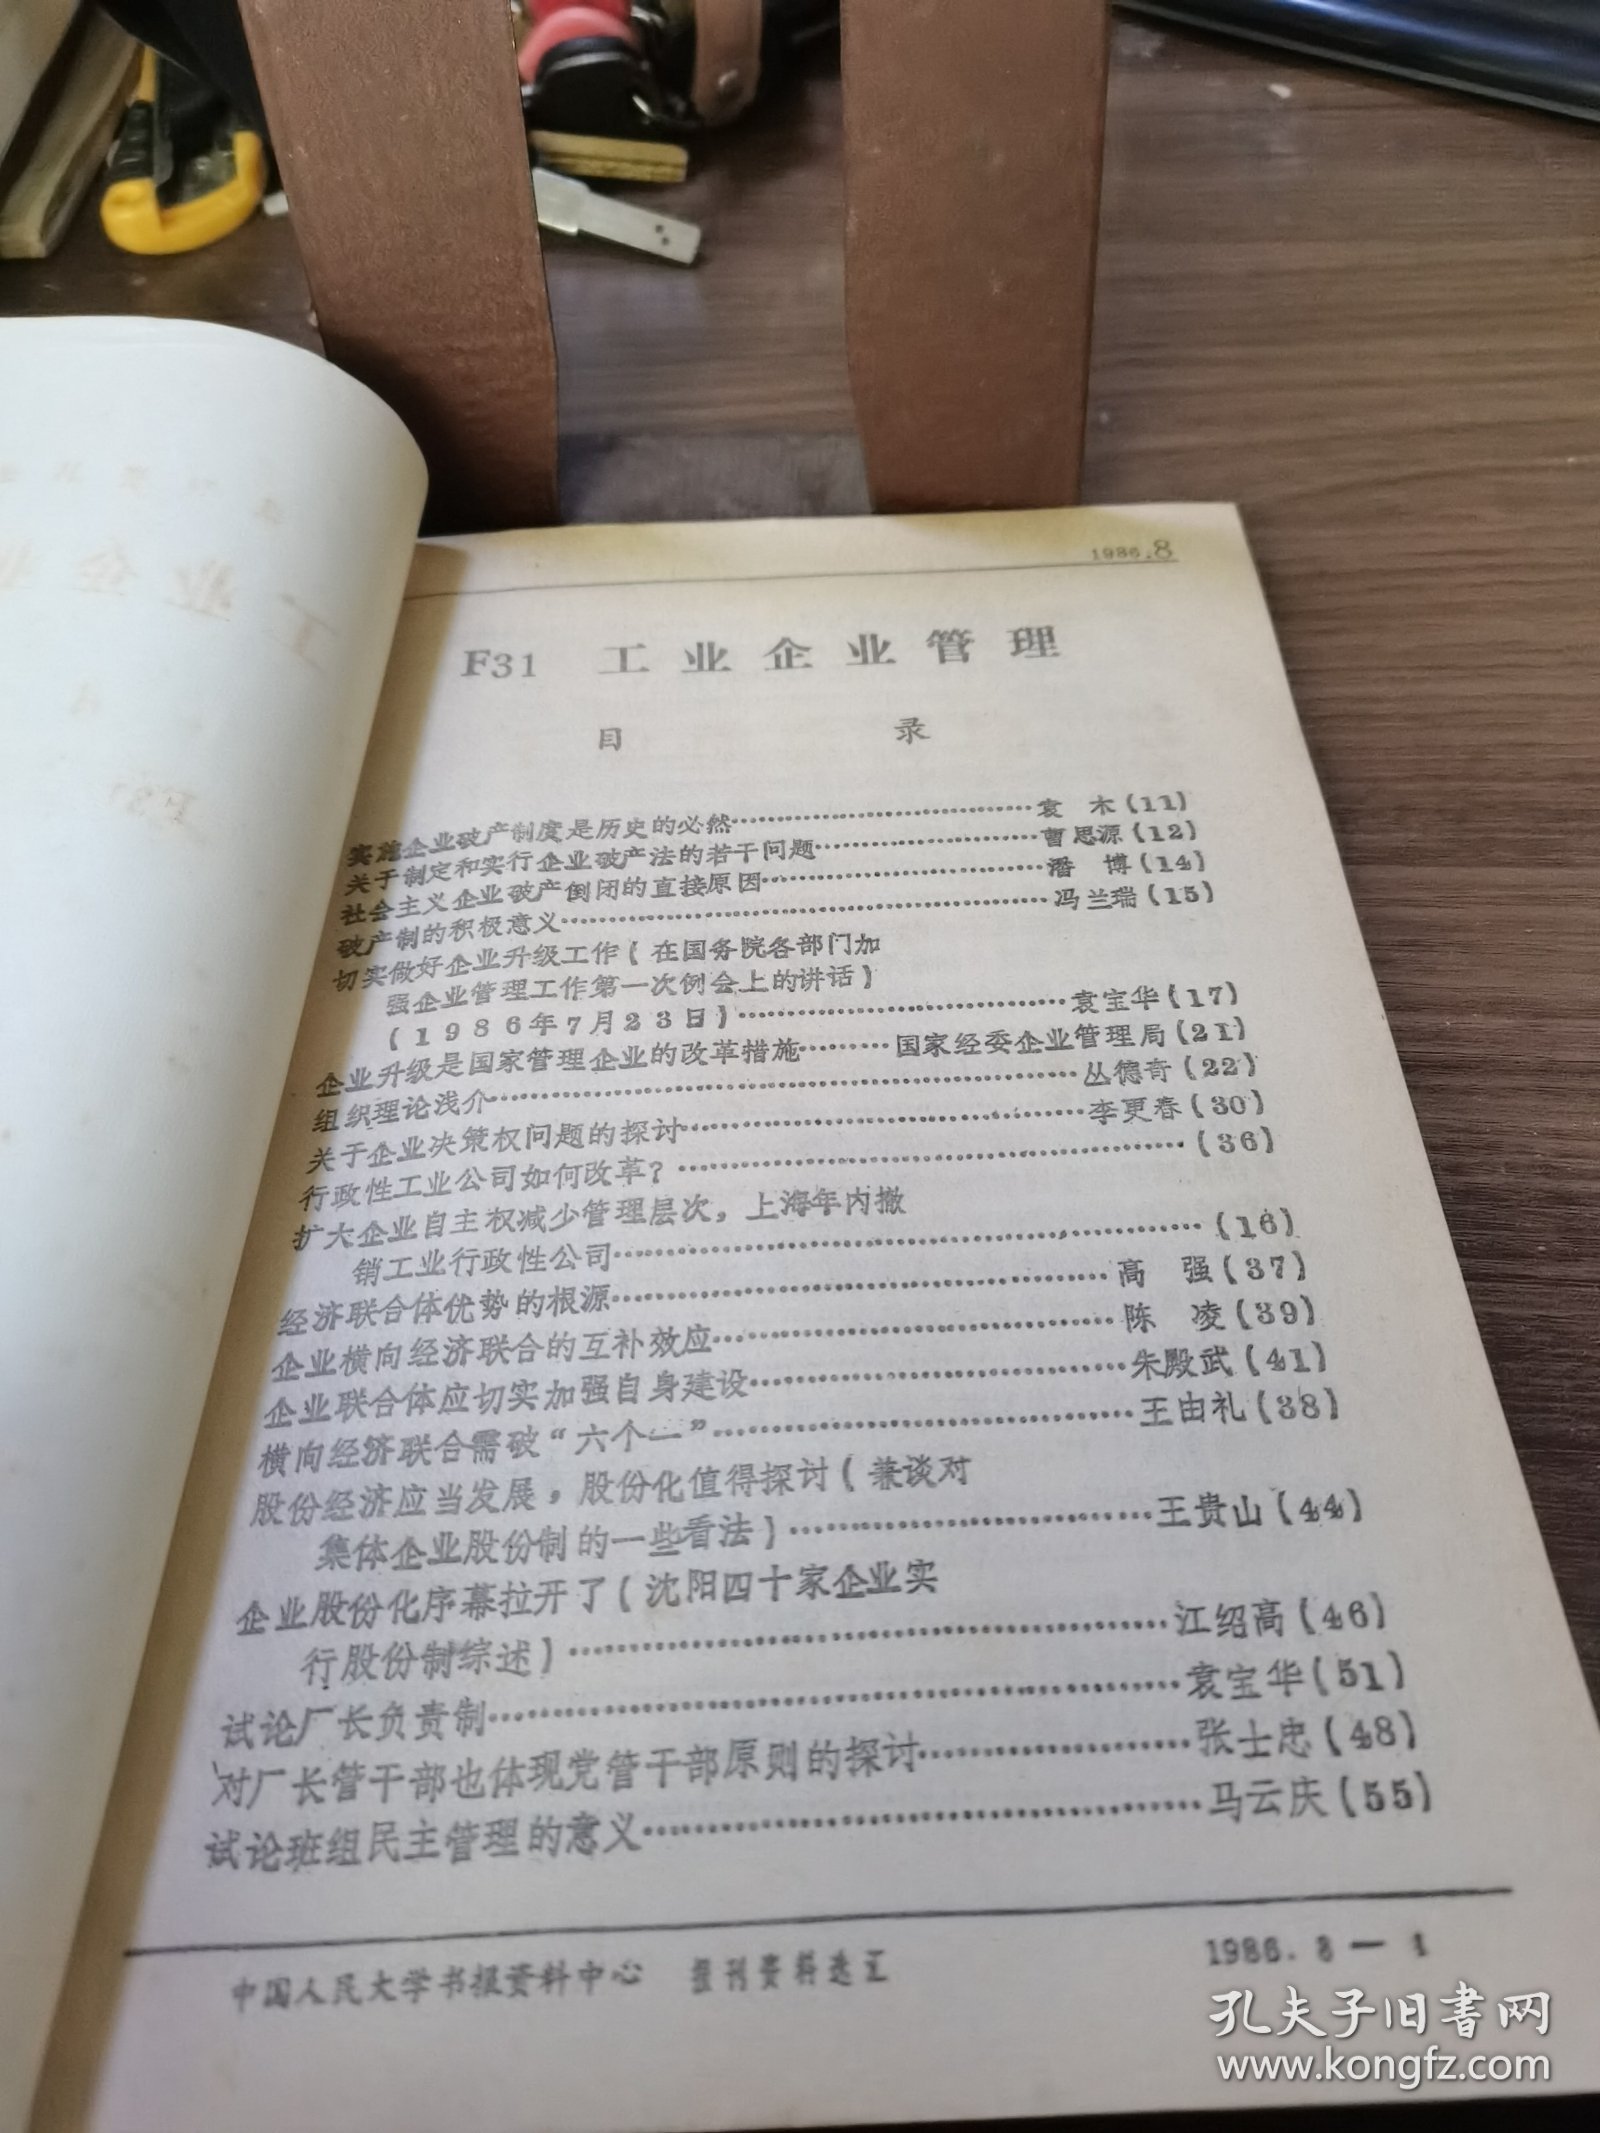 1986.8
F31 工业企业管理
目 录
实施企业破产制度是历史的必然…………袁 木（11）
关于制定和实行企业破产法的若干问题…………曹思源（12）
社会主义企业破产倒闭的直接原因…………潘 博（14）
破产制的积极意义…………冯兰瑞（15）
切实做好企业升级工作（在国务院各部门加
强企业管理工作第一次例会上的讲话）
（1986年7月23日）…………袁宝华（17）
企业升级是国家管理企业的改革措施………国家经委企业管理局（21）
组织理论浅介…………丛德奇（22）
关于企业决策权问题的探讨…………李更春（30）
行政性工业公司如何改革？…………（36）
扩大企业自主权减少管理层次，上海年内撤
销工业行政性公司…………（16）
经济联合体优势的根源…………高 强（37）
企业横向经济联合的互补效应…………陈 凌（39）
企业联合体应切实加强自身建设…………朱殿武（41）
横向经济联合需破“六个一”…………王由礼（38）
股份经济应当发展，股份化值得探讨（兼谈对
集体企业股份制的一些看法）…………王贵山（44）
企业股份化序幕拉开了（沈阳四十家企业实
行股份制综述）…………江绍高（46）
试论厂长负责制…………袁宝华（51）
对厂长管干部也体现党管干部原则的探讨…………张士忠（48）
试论班组民主管理的意义…………马云庆（55）
中国人民大学书报资料中心 报刊资料选汇 1986.8—1
孔夫子旧书网
www.kongfz.com